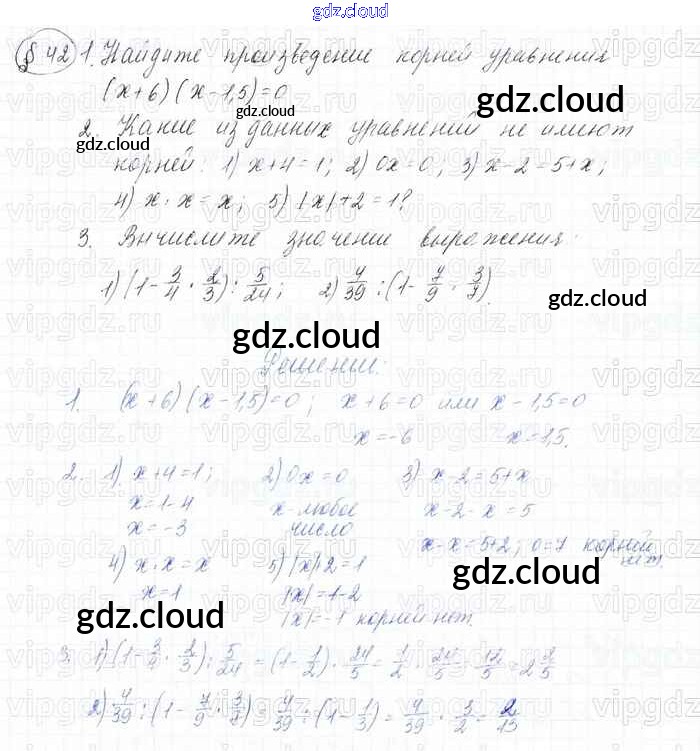 gdz.cloud
§ 42 1. Найдите произведение корней уравнения
gdz.cloud
(x+6)(x-1,5)=0
gdz.cloud
gdz.cloud
2. Какие из данных уравнений не имеют
gdz.cloud
корней: 1) x+4=1; 2) 0x=0; 3) x-2=5+x;
4) x·x=x; 5) |x|+2=1?
3. Вычислите значение выражения:
1) (1-3/4·2/3):5/24; 2) 4/39:(1-7/9·3/7).
gdz.cloud
gdz.cloud
Решение:
1. (x+6)(x-1,5)=0; x+6=0 или x-1,5=0
x=-6 x=1,5.
2. 1) x+4=1; 2) 0x=0 3) x-2=5+x
x=1-4 x-любое x-2-x=5
x=-3 число x-x=5+2; 0=7 корней нет.
4) x·x=x 5) |x|+2=1
x=1 |x|=1-2
|x|=-1 корней нет.
gdz.cloud
gdz.cloud
3. 1) (1-3/4·2/3):5/24=(1-1/2)·24/5=1/2·24/5=12/5=2 2/5
2) 4/39:(1-7/9·3/7)=4/39:(1-1/3)=4/39·3/2=2/13